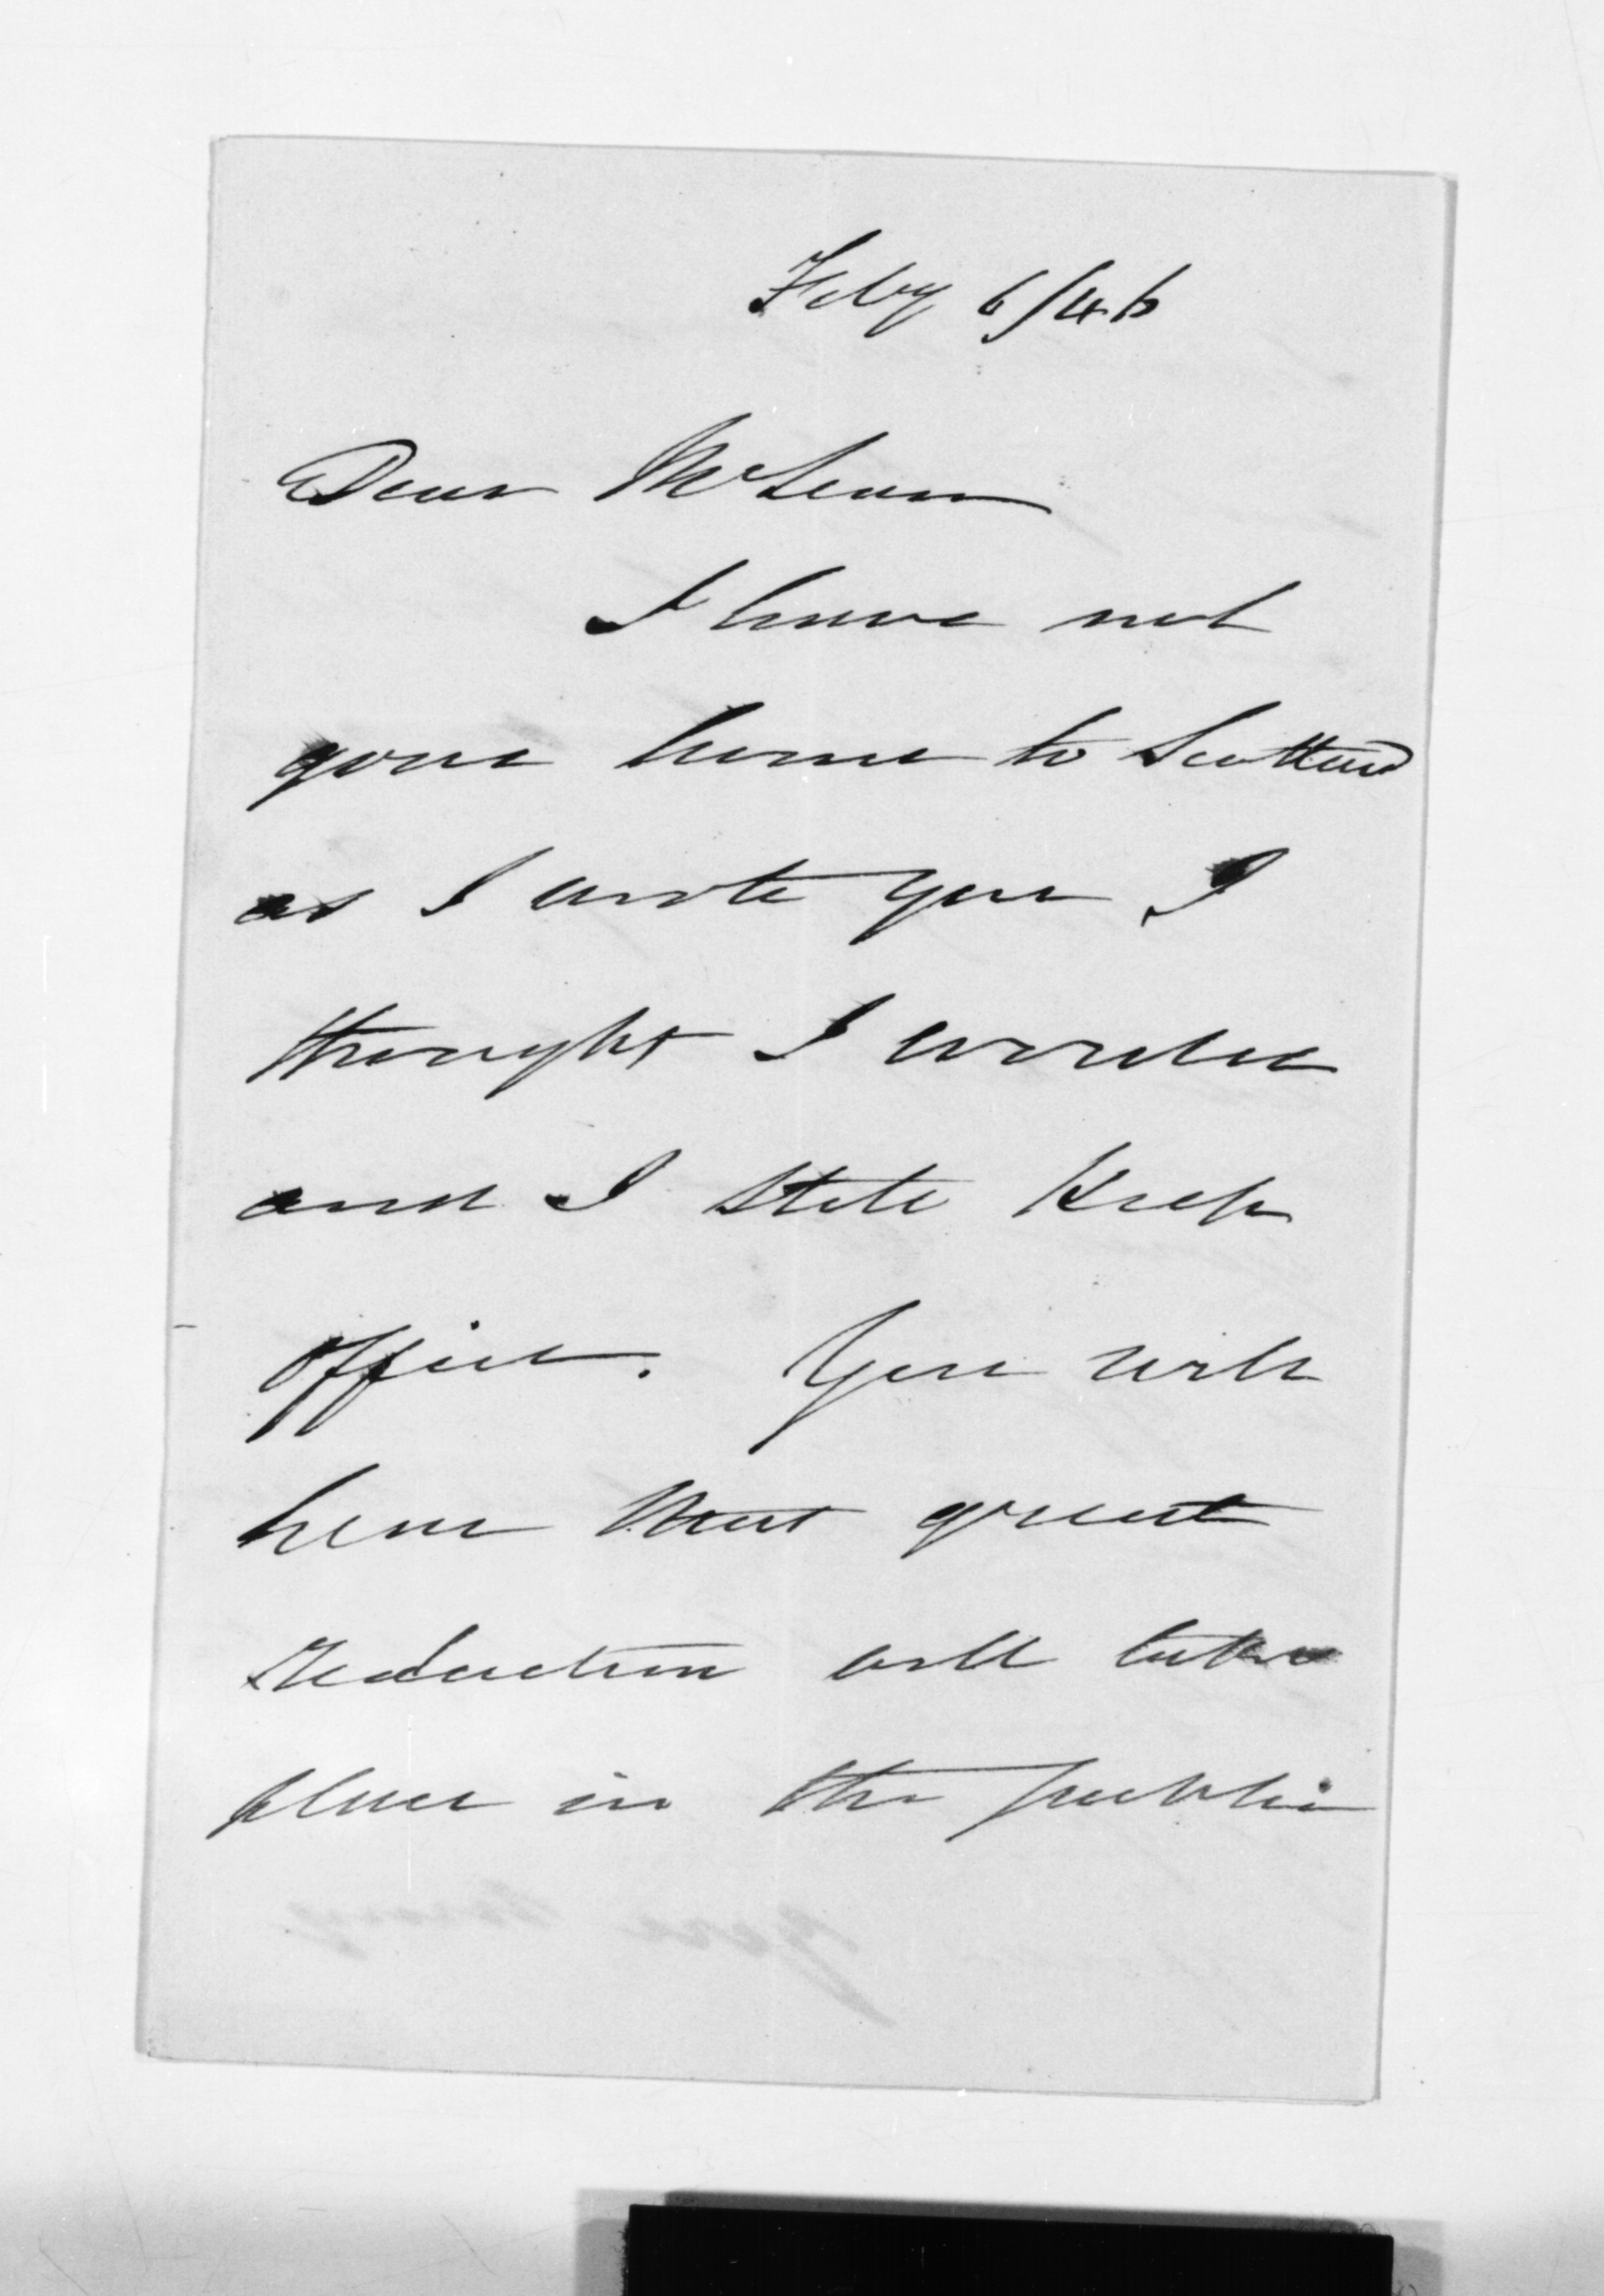 Feby 6/46
Dear McLean
I have not
gone home to Scotland
as I wrote you I
thought I would
and I still keep
office. You will
hear that great
reduction will take
place in the public